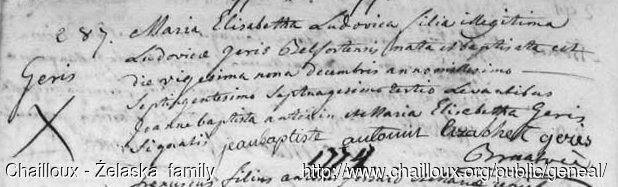 287. Maria Elisabetha Ludovica filia illegitima
Ludovicæ Geris Belfortensis nata et baptisata est
Geris
die vigesima nona decembris anno millesimo
Septingentesimo Septuagesimo tertio Levantibus
Joanne baptista antonin et Maria Elisabetha Geris
Signatis jeanbaptiste antonin geries
1774
filius
Chailloux - Żelaska family
http://www.chailloux.org/public/geneal/